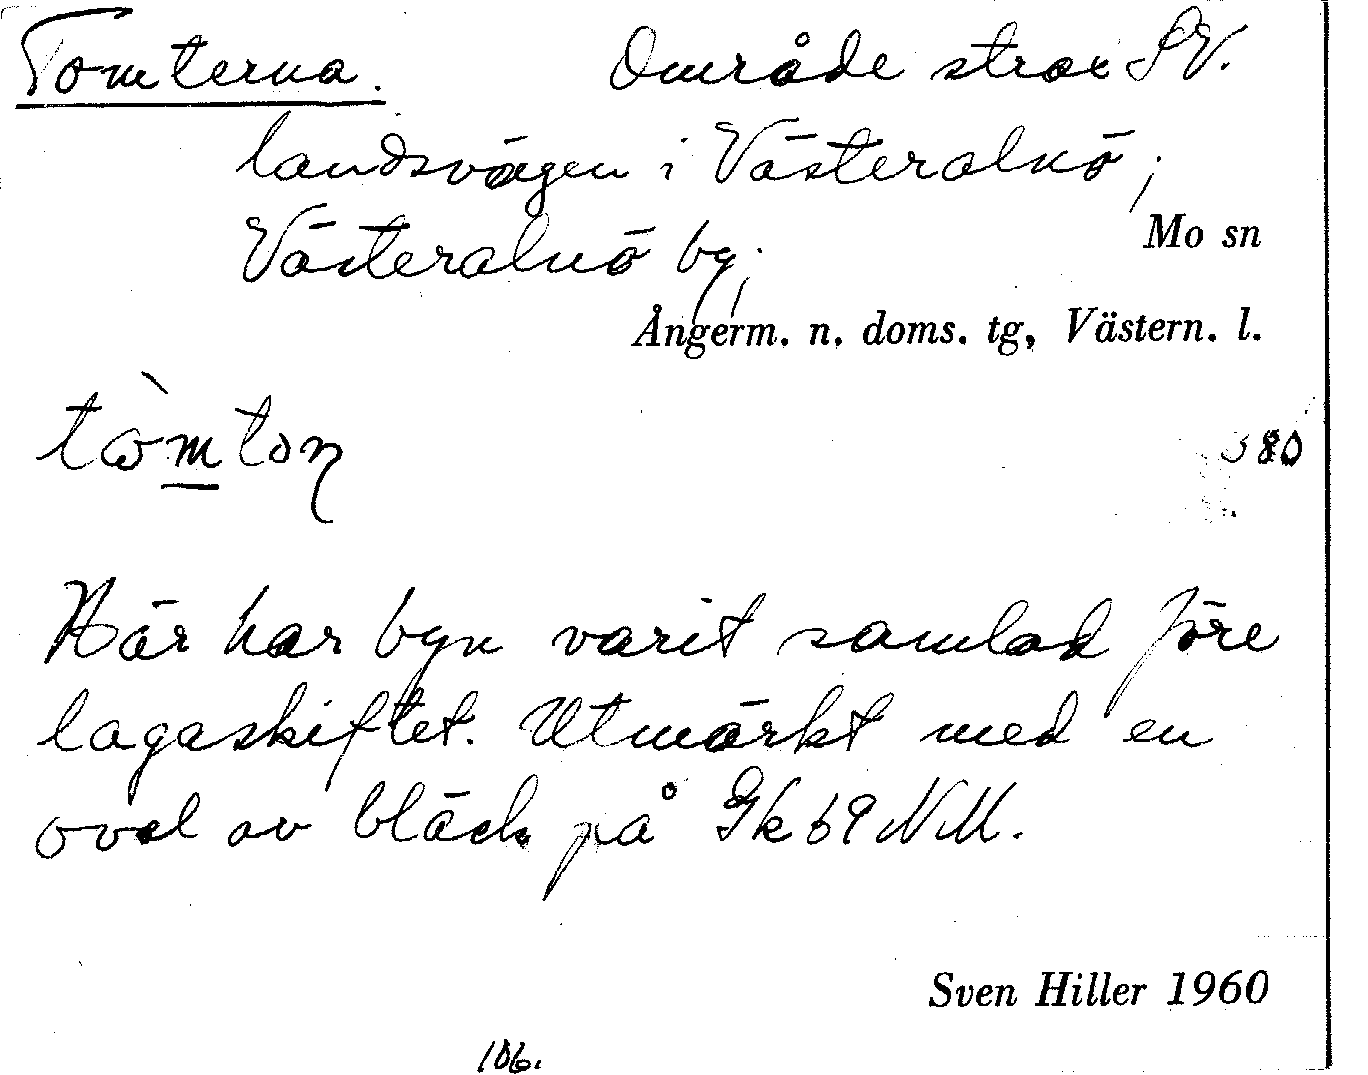 Tomterna. Område strax SV.
landsvägen i Västeralnö;
Västeralnö by;
Mo sn
Ångerm. n. doms. tg, Västern. l.
380
Här har byn varit samlad före
lagaskiftet. Utmärkt med en
oval av bläck på Gk 69 NM.
Sven Hiller 1960
106.